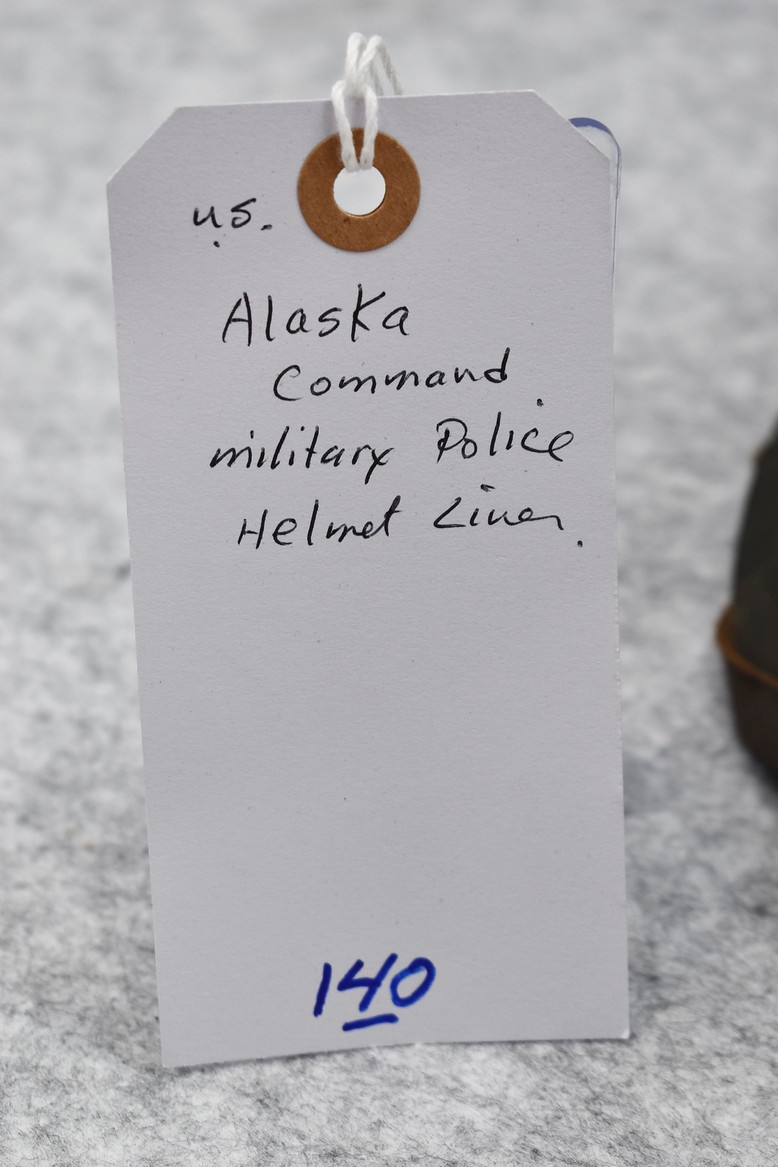 U.S.
Alaska
Command
military Police
Helmet Liner.
140